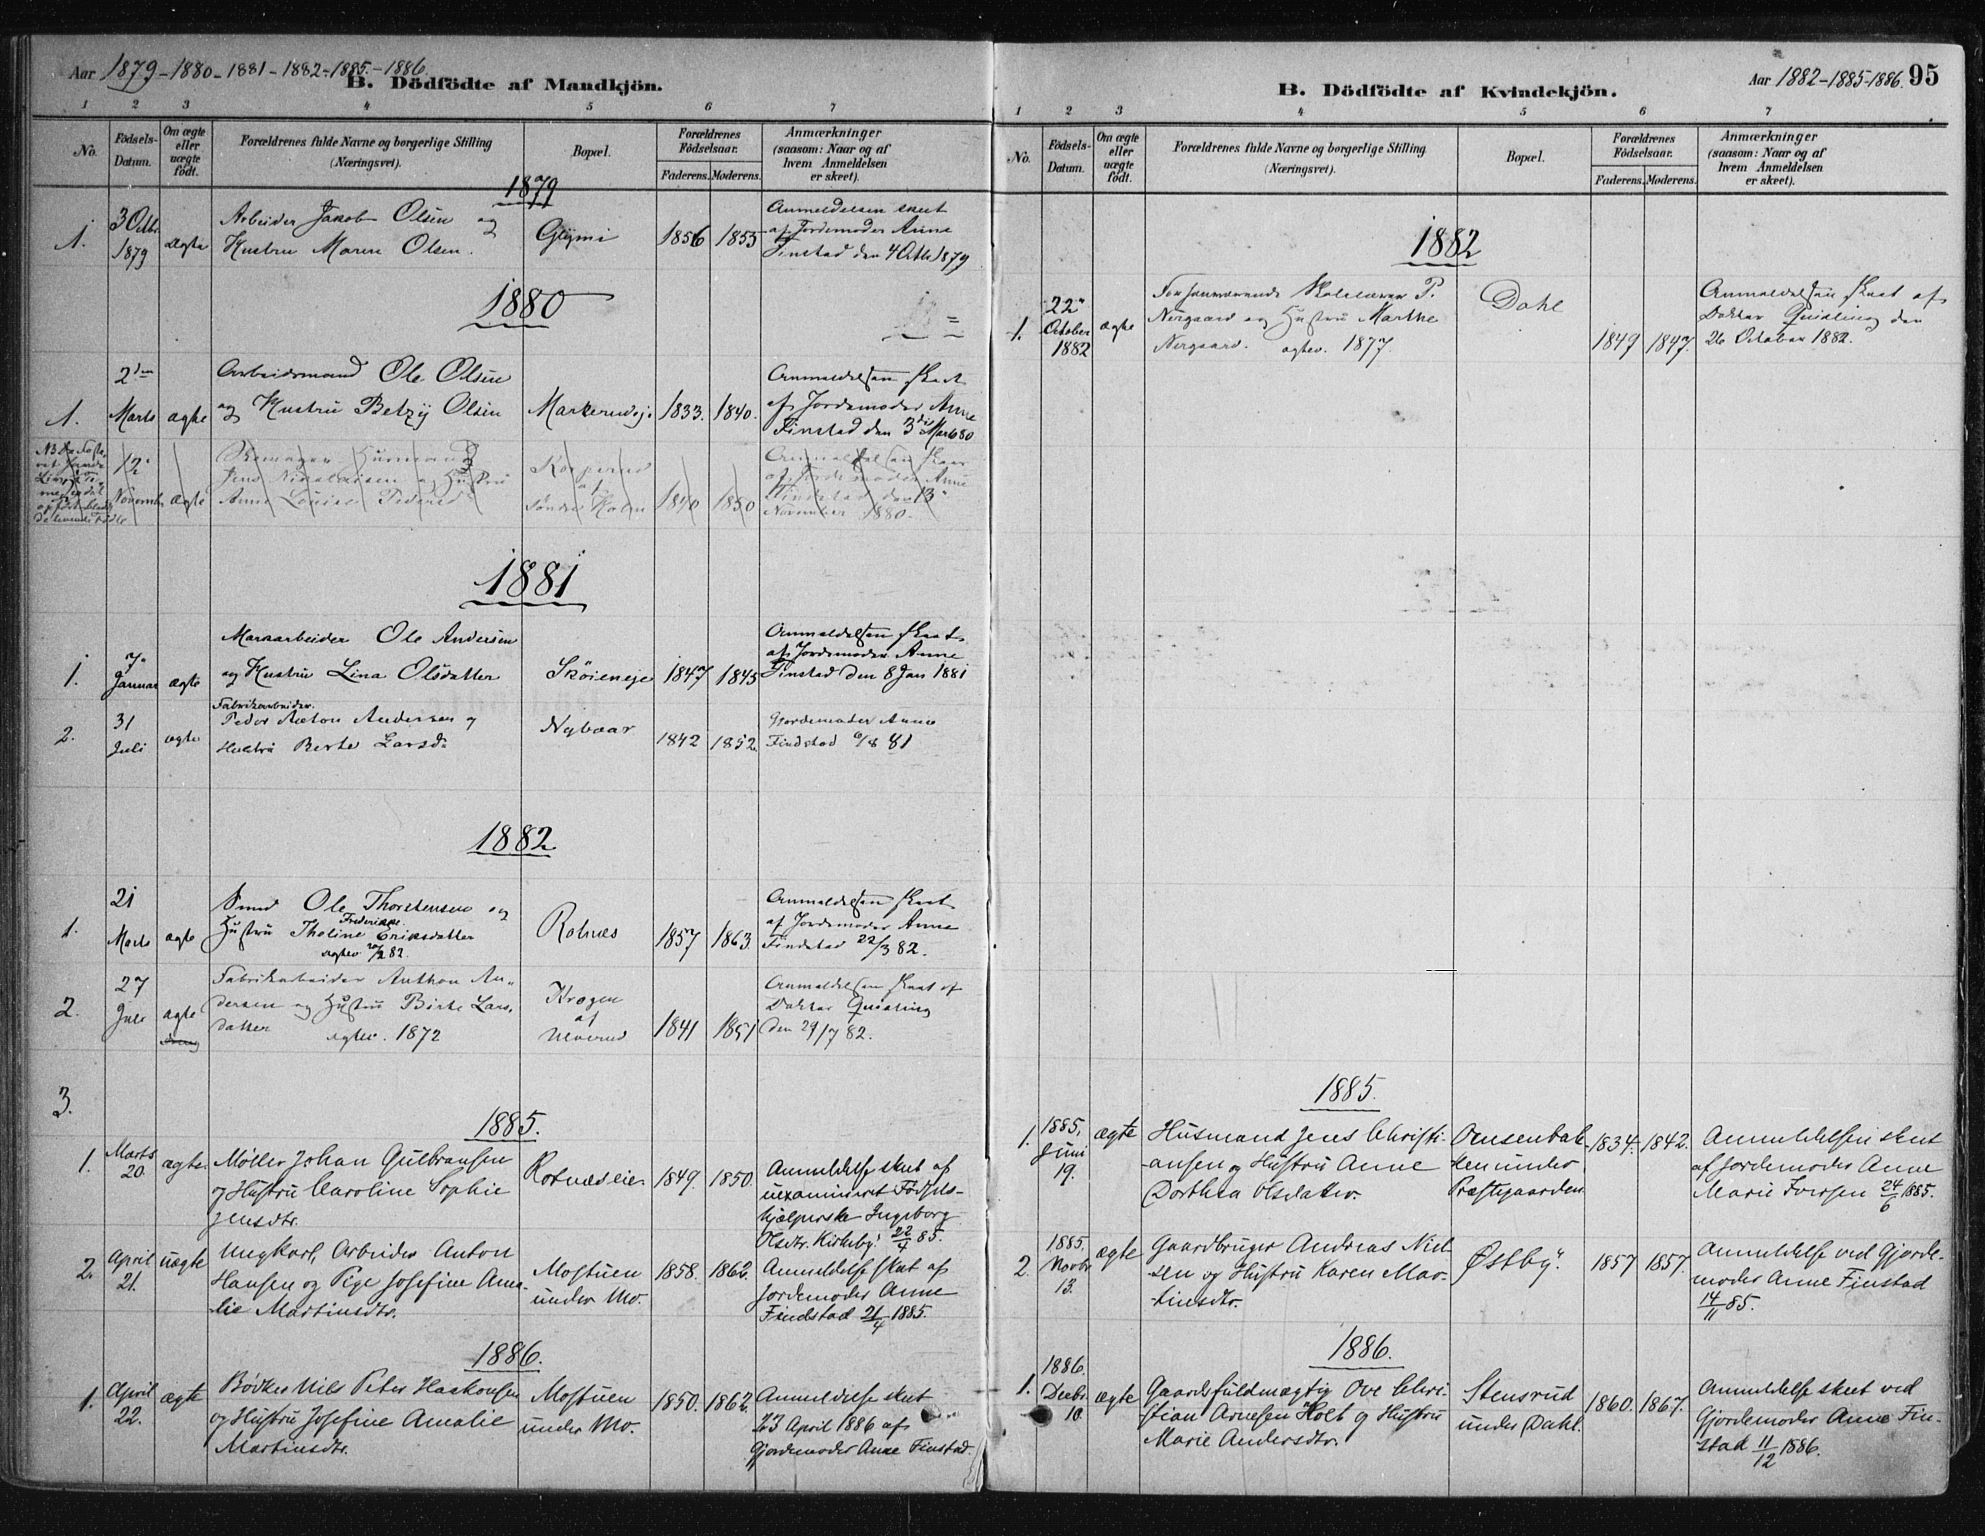 Aar 1879-1880-1881-1882-1885-1886.
B. Dödfödte af Mandkjön.
1 2 3 4 5 6 7
No.
Födsels-Datum.
Om ægte eller uægte födt.
Forældrenes fulde Navne og borgerlige Stilling (Næringsvei).
Bopæl.
Forældrenes Födselsaar.
Faderens. Moderens.
Anmærkninger (saasom: Naar og af hvem Anmeldelsen er skeet).
1879
1. 3 Octbr 1879 ægte
Arbeider Jakob Olsen og
Hustru Maren Olsen.
1856 1855
Anmeldelsen skeet
af Jordemoder Anne
Finstad den 4 Octb 1879
1880
1. 2den Marts ægte
Arbeidsmand Ole Olsen
og Hustru Betzy Olsen
Markerudeje 1833. 1840.
Anmeldelsen skeet
af Jordemoder Anne
Finstad den 3die Marts 80
12 November ægte
Husmand
Jens Nicolaisen og Hustru
Anne Louise Peders
af
Søndre Holm
1840 1850
Anmeldelsen skeet
af Jordemoder Anne
Findstad den 13
November 1880.
1881
1. 7 Januar ægte
Ole Andersen
og Hustru Lina Olsdatter
Skøieneje 1847 1845
Anmeldelsen skeet
af Jordemoder Anne
Finstad den 8 Jan 1881
2. 31 Juli ægte
Fabrikarbeider.
Peder Anton Andersen og
Hustru Berte Larsd.
Nybaar 1842 1852.
Gjordemoder Anne
Findstad 6/8 81
1882
1. 21 Marts ægte
Smed Ole Thorstensen og
Frederikke
Hustru Tholine Eriksdatter
ægtev. 82.
Rotnæs 1857 1863
Anmeldelsen skeet
af Jordemoder Anne
Findstad 22/3 82.
2. 27 Juli ægte
Fabrikarbeider Anthon An-
dersen og Hustru Birte Lars-
datter
ægtev. 1872
Kragen
af
Ulverud
1841 1851
Anmeldelsen skeet af
Doktor Quisling
den 29/7 82.
3.
1885.
1. Marts 20. ægte.
Møller Johan Gulbransen
og Hustru Caroline Sophie
Jensdtr.
Rotnæseie 1849. 1850.
Anmeldelse skeet af
uexamineret Fødsels-
hjælperske Ingeborg
Olsdtr. Kirkeby. 22/4 85.
2. April 21. uægte
Ungkarl, Arbeider Anton
Hansen og Pige Josefine Ama-
lie Martinsdtr.
Mostuen
under Mo.
1858. 1862.
Anmeldelse skeet af
Jordemoder Anne
Findstad 21/4 1885.
1886.
1. April 22. ægte
Bødker Nils Peter Haakonsen
og Hustru Josefine Amalie
Martinsdtr.
Mostuen
under Mo.
1850. 1862.
Anmeldelse skeet
23 April 1886 af
Gjordemoder Anne Finstad.
Aar 1882-1885-1886. 95
B. Dödfödte af Kvindekjön.
1 2 3 4 5 6 7
No.
Födsels-Datum.
Om ægte eller uægte födt.
Forældrenes fulde Navne og borgerlige Stilling (Næringsvei).
Bopæl.
Forældrenes Födselsaar.
Faderens. Moderens.
Anmærkninger (saasom: Naar og af hvem Anmeldelsen er skeet).
1882
1. 22 October 1882 ægte
Forhenværende Skolelærer P.
Nergaard og Hustru Marthe
Nergaard. ægtev. 1877.
Dahl
1849 1847.
Anmeldelsen skeet af
Doktor Quisling den
26 October 1882.
1885.
1. 1885. Juni 19. ægte
Husmand Jens Christi-
ansen og Hustru Anne
Dorthea Olsdatter.
under
Præstgaarden
1834. 1842.
Anmeldelsen skeet
af Jordemoder Anne
Marie Iversen 24/6 1885.
2. 1885. Novbr 13. ægte
Gaardbruger Andreas Niel-
sen og Hustru Karen Mar-
tinsdtr.
Østby. 1857 1857.
Anmeldelse ved Gjorde-
moder Anne Finstad
14/11 85.
1886.
1. 1886. Decbr. 10. ægte
Gaardsfuldmægtig Ove Chri-
stian Arnesen Holt og Hustru
Marie Andersdtr.
Stensrud
under Dahl.
1860. 1867.
Anmeldelse skeet ved
Gjordemoder Anne Fin-
stad 11/12 1886.